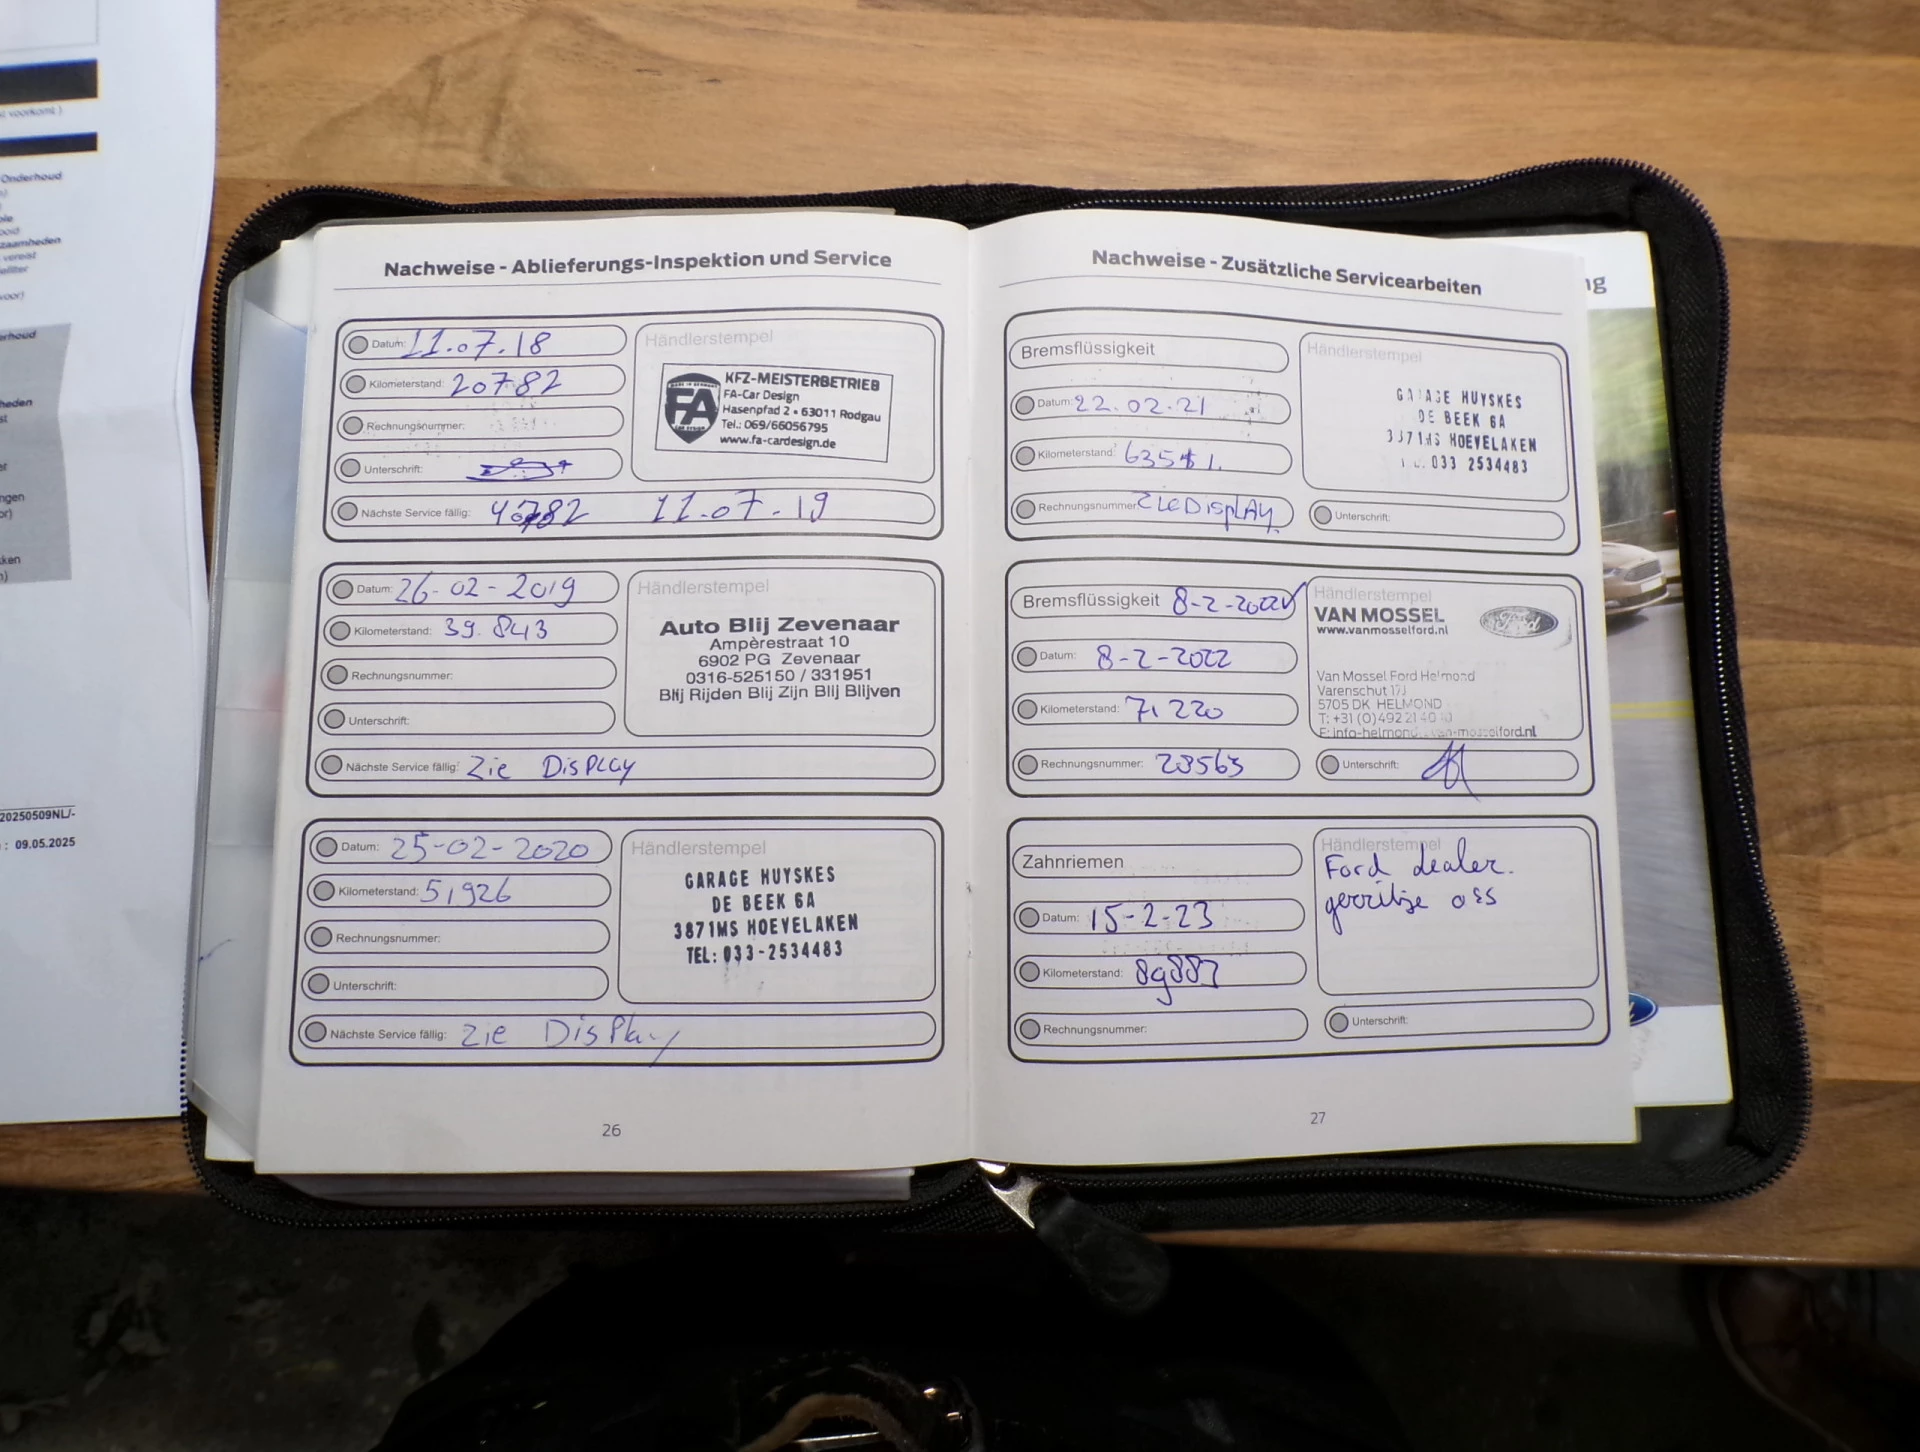 t voorkomt.)
Onderhoud
zaamheden
vereist
voor)
erhoud
heden
20250509NL/-
: 09.05.2025
Nachweise - Ablieferungs-Inspektion und Service
Datum: 11.07.18
Kilometerstand: 20782
Rechnungsnummer:
Unterschrift:
Nächste Service fällig: 40782 11.07.19
Händlerstempel
FA
KFZ-MEISTERBETRIEB
FA-Car Design
Hasenpfad 2 • 63011 Rodgau
Tel.: 069/66056795
www.fa-cardesign.de
Datum: 26-02-2019
Kilometerstand: 39.843
Rechnungsnummer:
Unterschrift:
Nächste Service fällig: Zie Display
Händlerstempel
Auto Blij Zevenaar
Ampèrestraat 10
6902 PG Zevenaar
0316-525150 / 331951
Blij Rijden Blij Zijn Blij Blijven
Datum: 25-02-2020
Kilometerstand: 51926
Rechnungsnummer:
Unterschrift:
Nächste Service fällig: Zie Display
Händlerstempel
GARAGE HUYSKES
DE BEEK 6A
3871MS HOEVELAKEN
TEL: 033-2534483
26
Nachweise - Zusätzliche Servicearbeiten
Bremsflüssigkeit
Datum: 22.02.21
Kilometerstand:
Rechnungsnummer: Zie Display
Händlerstempel
GARAGE HUYSKES
DE BEEK 6A
3871MS HOEVELAKEN
033 2534483
Unterschrift:
Bremsflüssigkeit 8-2-2022
Datum: 8-2-2022
Kilometerstand: 71220
Rechnungsnummer: 23563
Händlerstempel
VAN MOSSEL
www.vanmosselford.nl
Ford
Van Mossel Ford Helmond
Varenschut
5705 DK HELMOND
T: +31 (0)492 21 40
E: info-helmond van-mosselford.nl
Unterschrift:
Zahnriemen
Datum: 15-2-23
Kilometerstand: 89887
Rechnungsnummer:
Händlerstempel
Ford dealer.
gerritse oss
Unterschrift:
27
ng